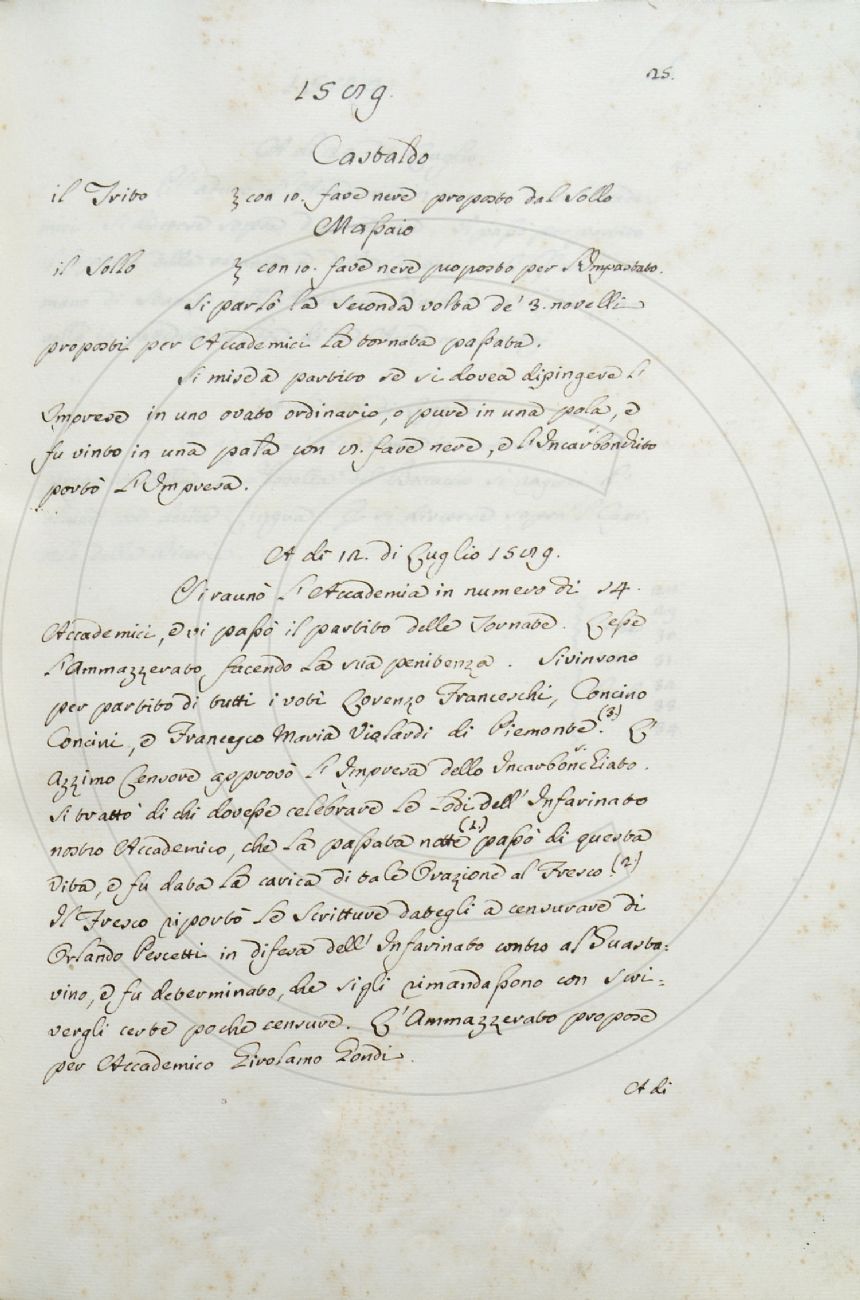 25.
1589.
Castaldo
il Trito } con 10. fave nere proposto dal Sollo
Massaio
il Sollo } con 10. fave nere proposto per l'Impastato.
Si parlò la seconda volta de' 3. novelli
proposti per Accademici la tornata passata.
Si mise a partito se si dovea dipingere l'
Imprese in uno ovato ordinario, o pure in una pala, e
fu vinto in una pala con 8. fave nere, e l'Incarbonchito
portò l'Impresa.
A dì 12. di Luglio 1589.
Si raunò l'Accademia in numero di 14.
Accademici, e vi passò il partito delle Tornate. Lesse
l'Ammazzerato, facendo la sua penitenza. Si vinsono
per partito di tutti i voti Lorenzo Franceschi, Concino
Concini, e Francesco Maria Vialardi di Piemonte.(3) L'
Azzimo Censore approvò l'Impresa dello Incarbonchiato.
Si trattò di chi dovesse celebrare le Lodi dell'Infarinato
nostro Accademico, che la passata notte (1) passò di questa
Vita, e fu data la carica di tale Orazione al Fresco.(2)
Il Fresco riportò le scritture dategli a censurare di
Orlando Pescetti in difesa dell'Infarinato contro al Guasta=
vino, e fu determinato, che si gli rimandassono con scri=
vergli certe poche censure. L'Ammazzerato propose
per Accademico Girolamo Gondi.
A di